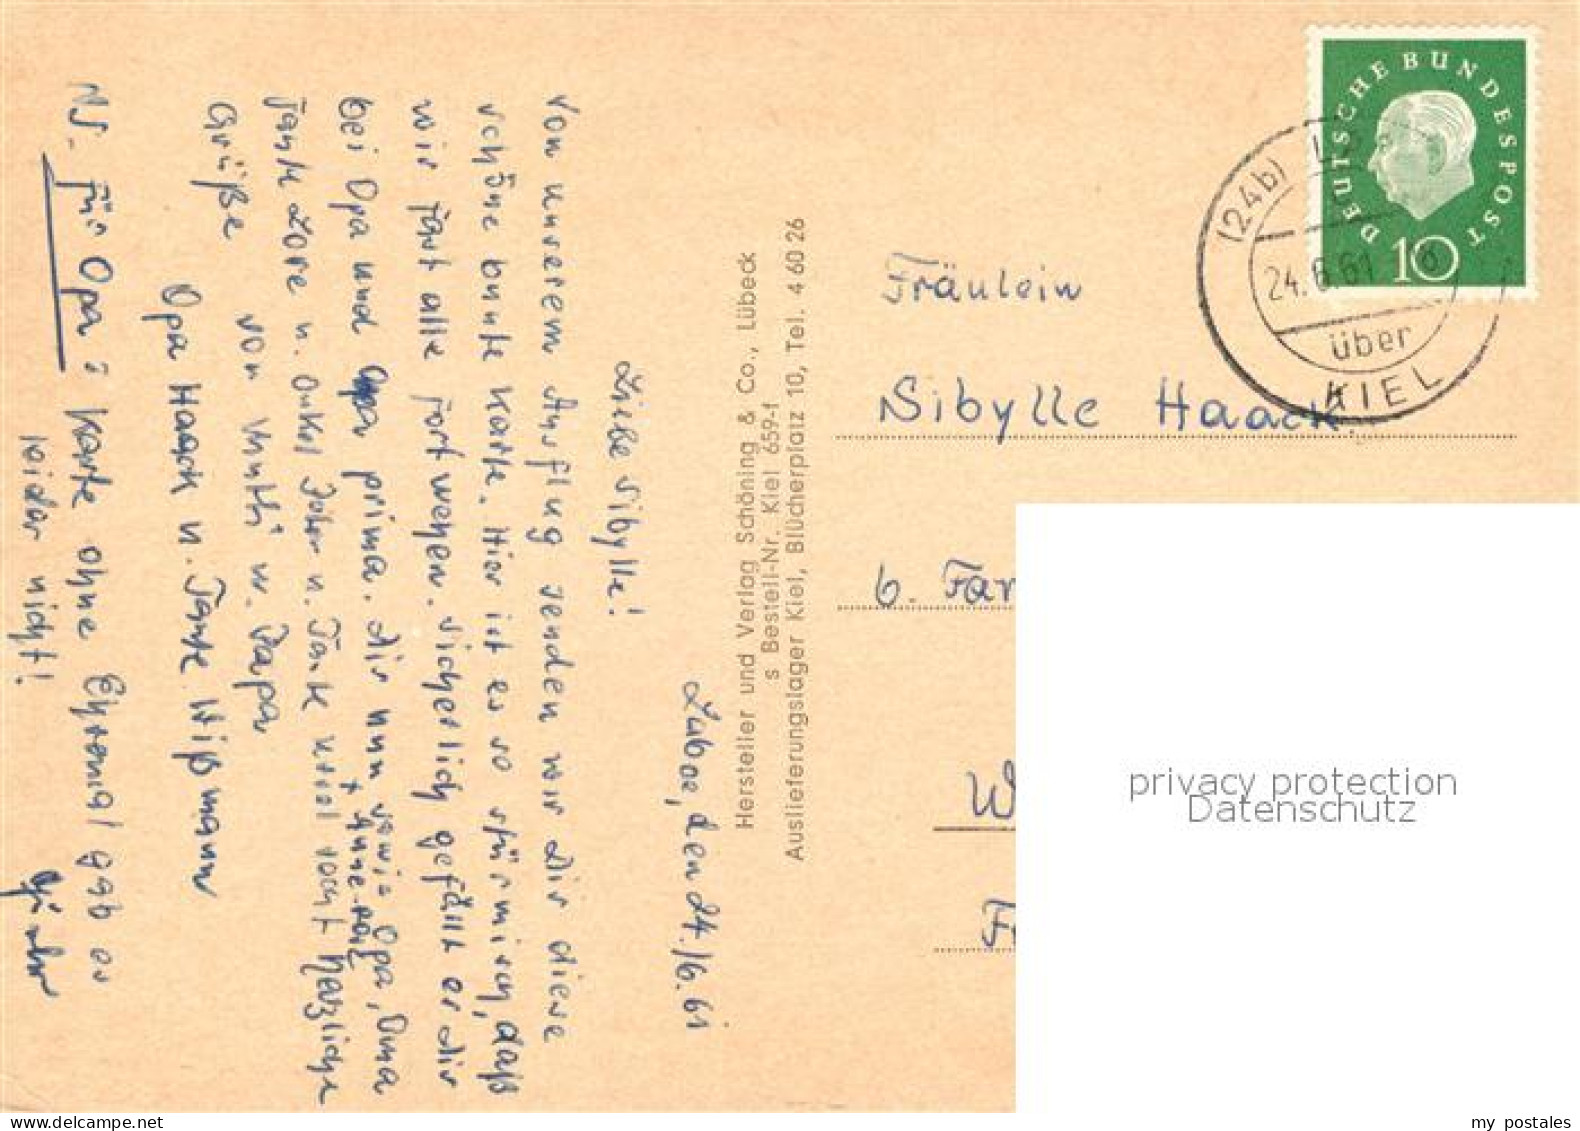 Laboe, den 24./6.61
Liebe Sibylle!
Von unserem Ausflug senden wir Dir diese
schöne bunte Karte. Hier ist es so stürmisch, daß
wir fast alle fortwehen. Sicherlich gefällt es dir
bei Opa und Opa prima. Dir nun sowie Opa, Oma
+ Anne-
Tante Lore u. Onkel Peter u. Tante recht herzliche
Grüße von Mutti u. Papa
Opa Haack u. Tante Wißmann
NS. für Opa: Karte ohne Ehrenmal gab es
leider nicht!
Hersteller und Verlag Schöning & Co., Lübeck
s Bestell-Nr. Kiel 659-f
Auslieferungslager Kiel, Blücherplatz 10, Tel. 4 60 26
DEUTSCHE BUNDESPOST
10
(24b)
24.6.61
über
KIEL
Fräulein
Sibylle Haack
b. Far
W
privacy protection
Datenschutz
my postales